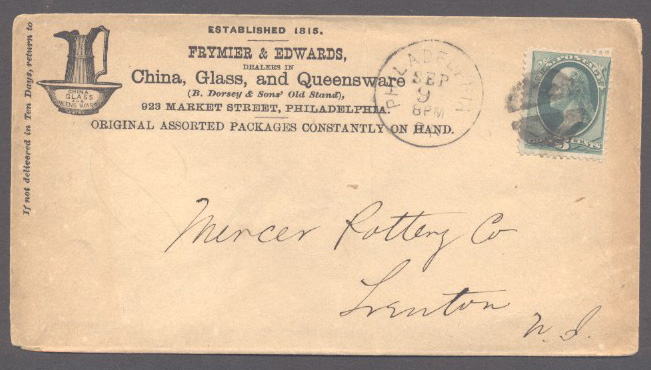 If not delivered in Ten Days, return to
CHINA
GLASS
AND
QUEENSWARE
ESTABLISHED 1815.
FRYMIER & EDWARDS,
DEALERS IN
China, Glass, and Queensware
(B. Dorsey & Sons' Old Stand),
923 MARKET STREET, PHILADELPHIA.
ORIGINAL ASSORTED PACKAGES CONSTANTLY ON HAND.
PHILADELPHIA
SEP
9
8PM
POSTAGE
CENTS
Mercer Pottery Co
Trenton
N.J.